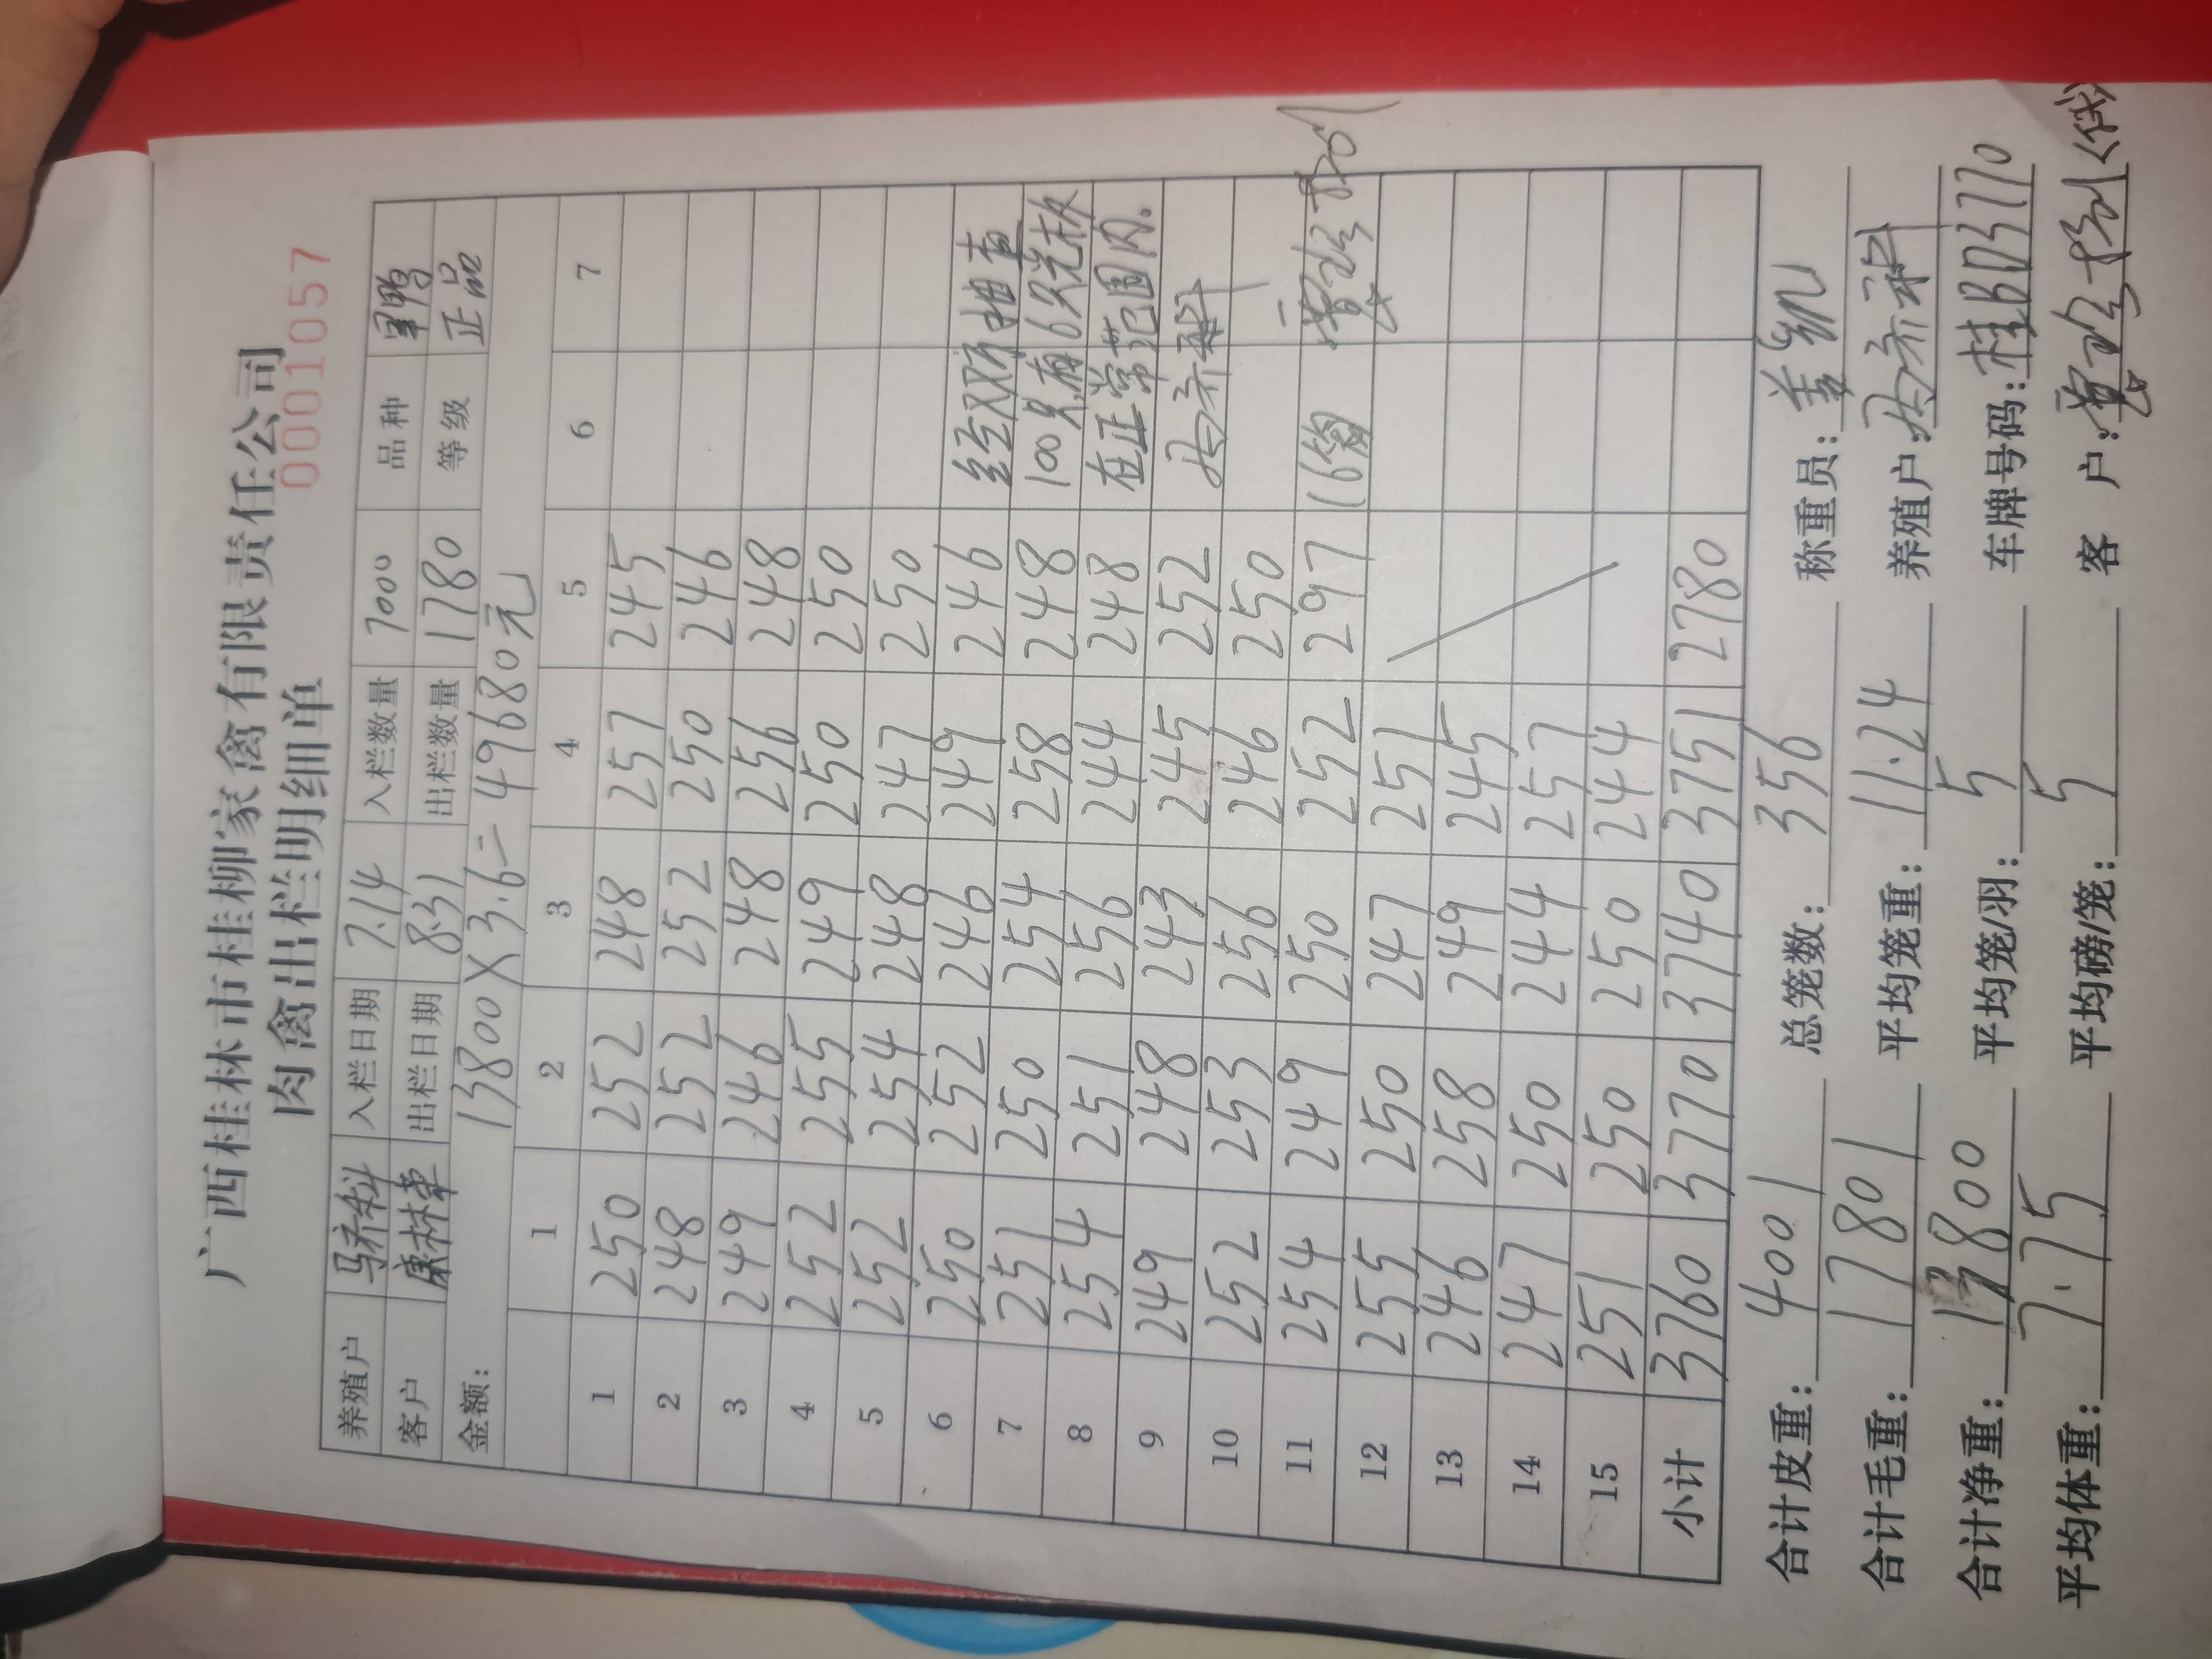 广西桂林市桂柳家禽有限责任公司
肉禽出栏明细单
0001057
养殖户 马乔科 入栏日期 7.14 入栏数量 7000 品种 鸭
客户 康林革 出栏日期 8.31 出栏数量 1780 等级 正品
金额: 13800×3.6=49680元
1 2 3 4 5 6 7
1 250 252 248 257 245
2 248 252 252 250 246
3 249 246 248 256 248
4 252 255 249 250 250
5 252 254 248 247 250
6 250 252 246 249 246 经双方抽查
7 251 250 254 258 248 100只有6只无政
8 254 251 256 244 248 在正常范围内.
9 249 248 243 245 252 马乔科
10 252 253 256 246 250
11 254 249 250 252 297 (6笼)
12 255 250 247 251
13 246 258 249 245
14 247 250 244 257
15 251 250 250 244
小计 3760 3770 3740 3751 2780
合计皮重: 4001 总笼数: 356 称重员:
合计毛重: 17801 平均笼重: 11.24 养殖户: 马乔科
合计净重: 13800 平均笼/羽: 5 车牌号码: 桂BD3770
平均体重: 7.75 平均磅/笼: 5 客 户: